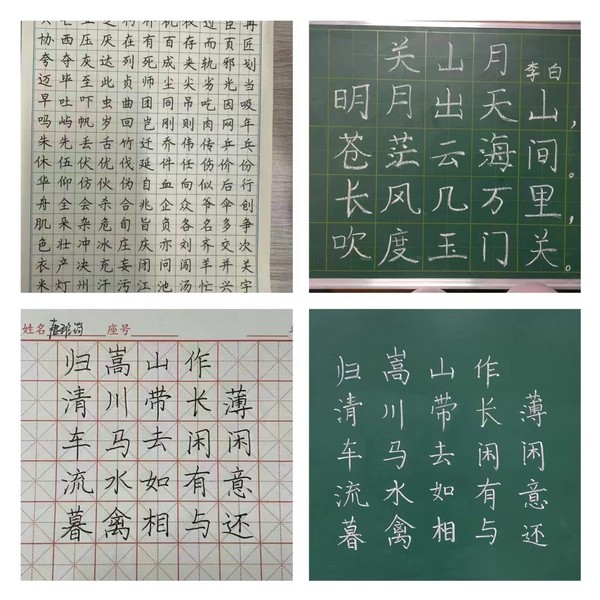 协西压厌在有百存而页匠
夸夺灰达列死成夹轨邪划
迈毕至此贞师尘尖劣光当
早吐吓虫曲团同吊吃因吸
吗屿帆岁回岂刚则肉网年
朱先丢古竹迁乔伟传乒乓
休伍伏优伐延件任伤价份
华仰仿伙伪自血向似后行
舟全会杀合兆企众爷伞创
肌朵杂危旬旨负各名多争
色壮冲冰庄庆亦刘齐交次
衣产决充妄闭问闯羊并关
米灯州汗污江池汤忙兴宇
关山月 李白
明月出天山，
苍茫云海间。
长风几万里，
吹度玉门关。
姓名 座号
归嵩山作
清川带长薄
车马去闲闲
流水如有意
暮禽相与还
归嵩山作
清川带长薄
车马去闲闲
流水如有意
暮禽相与还